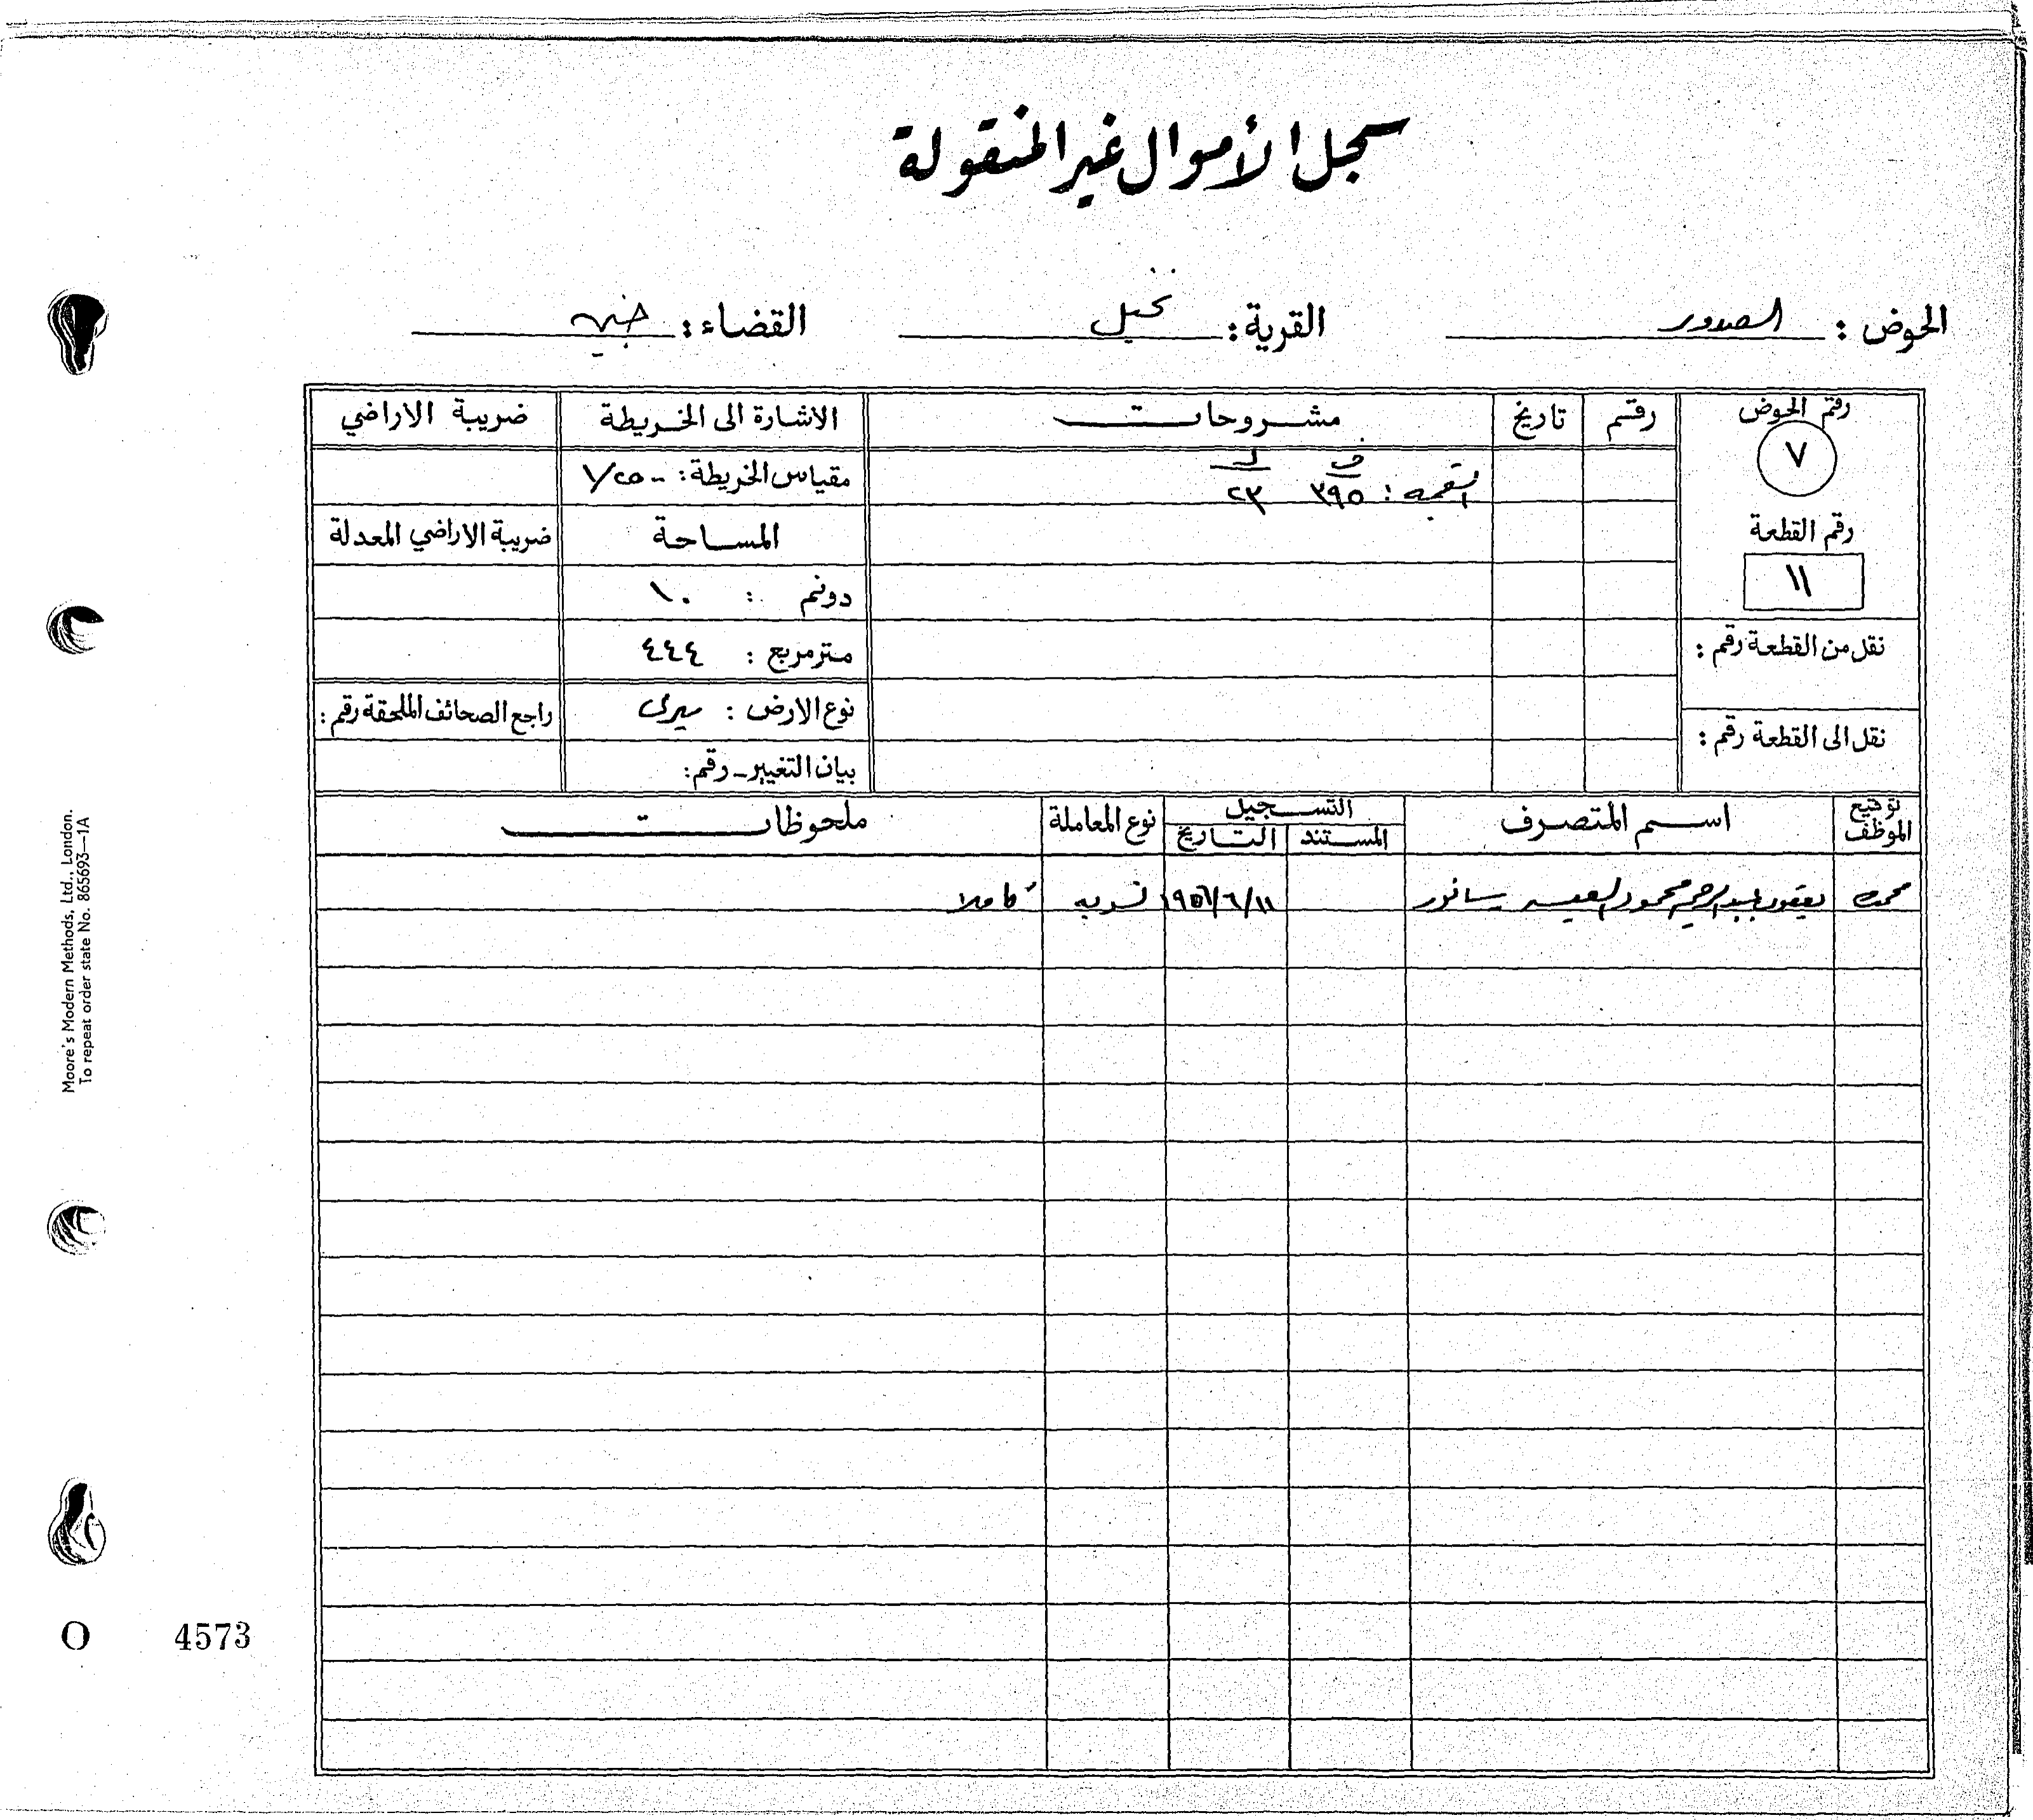 سجل الأموال غير المنقولة
الحوض : الصدور القرية : القضاء : جنين
رقم الحوض رقم تاريخ مشروحات الاشارة الى الخريطة ضريبة الاراضي
٧ القيمه : ف ٣٩٥ د ٢٣ مقياس الخريطة : ١/٢٥٠٠
رقم القطعة المساحة ضريبة الاراضي المعدلة
١١ دونم : ١٠
نقل من القطعة رقم : مترمربع : ٤٤٤
نوع الارض : ميري راجع الصحائف الملحقة رقم :
نقل الى القطعة رقم : بيان التغيير - رقم :
توقيع الموظف اسم المتصرف التسجيل نوع المعاملة ملحوظات
المستند التاريخ
يعقوب عبد الرحيم محمود العيسى سانور ١١/٦/١٩٥٦ تسويه كاملا
Moore's Modern Methods, Ltd., London.
To repeat order state No. 865693—1A
O 4573